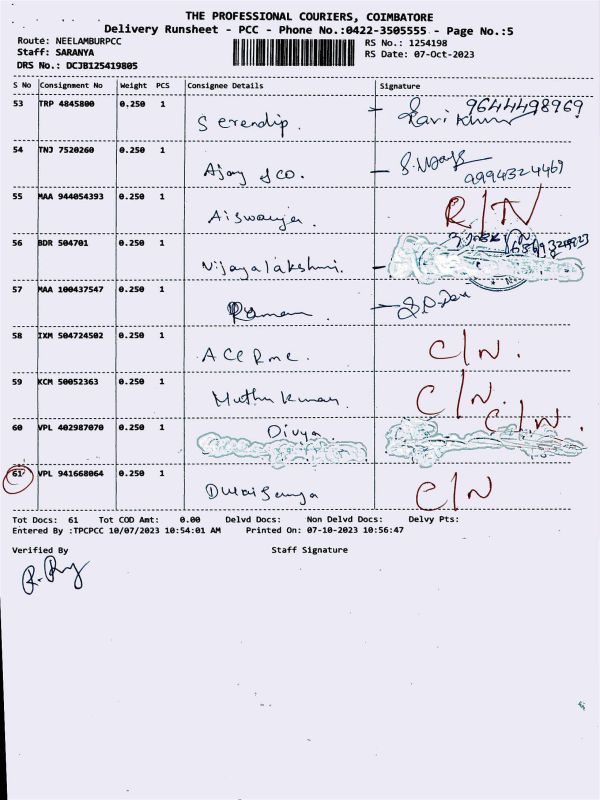 THE PROFESSIONAL COURIERS, COIMBATORE
Delivery Runsheet - PCC - Phone No.:0422-3505555 - Page No.:5
Route: NEELAMBURPCC RS No.: 1254198
Staff: SARANYA RS Date: 07-Oct-2023
DRS No.: DCJB125419805
S No Consignment No Weight PCS Consignee Details Signature
53 TRP 4845800 0.250 1 Serendip. 9644498969
Ravi Kumar
54 TNJ 7520260 0.250 1 Ajay & co. 9994324469
55 MAA 944054393 0.250 1 Aiswarya R/TN
56 BDR 504701 0.250 1 Vijayalakshmi.
57 MAA 100437547 0.250 1 Raman
58 IXM 504724502 0.250 1 C/N.
59 KCM 50052363 0.250 1 Muthu Kumar. C/N.
60 VPL 402987070 0.250 1 Divya C/N.
61 VPL 941668064 0.250 1 C/N
Tot Docs: 61 Tot COD Amt: 0.00 Delvd Docs: Non Delvd Docs: Delvy Pts:
Entered By :TPCPCC 10/07/2023 10:54:01 AM Printed On: 07-10-2023 10:56:47
Verified By Staff Signature